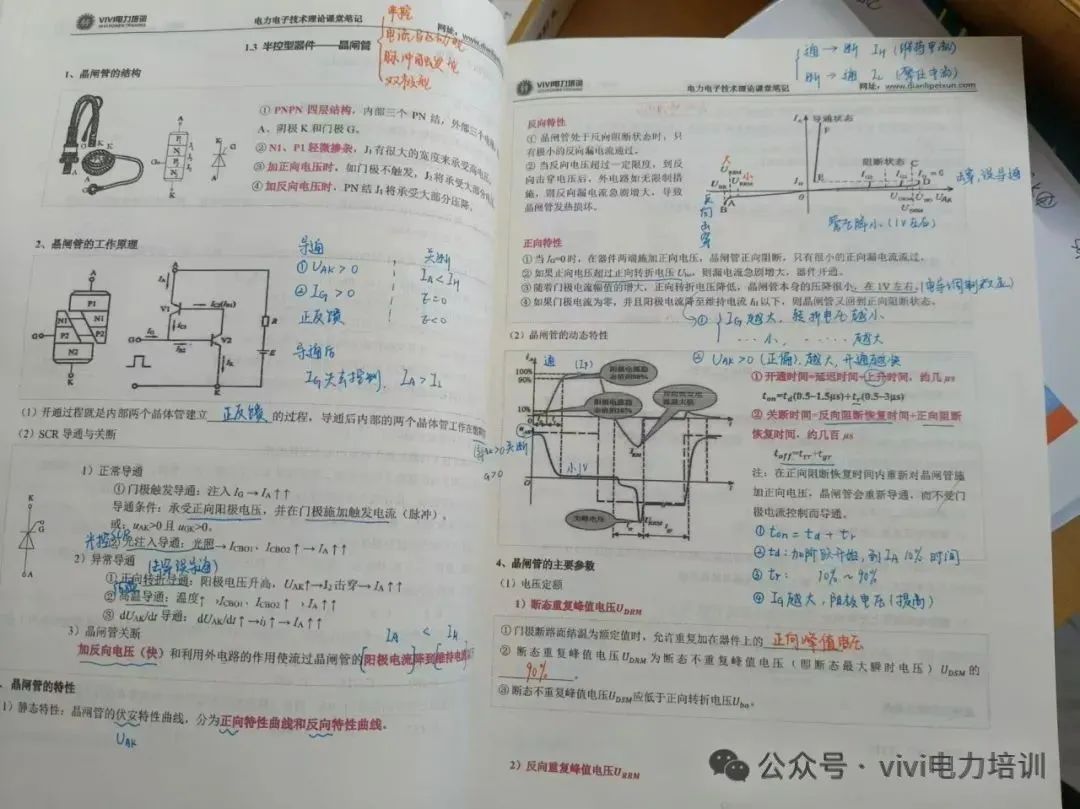 VIVI电力培训
电力电子技术理论课堂笔记
网址: www.dian
1.3 半控型器件——晶闸管
半控
脉冲触发
双极型
1、晶闸管的结构
① PNPN 四层结构，内部三个 PN 结，外部三个电
A、阴极 K 和门极 G。
② N1、P1 轻微掺杂，J₁有很大的宽度来承受高电压。
③ 加正向电压时，如门极不触发，J₂将承受大部分
④ 加反向电压时，PN 结 J₁将承受大部分压降。
2、晶闸管的工作原理
导通
① UAK > 0
② IG > 0
正反馈
导通后
IG 失去控制, IA > IL
关断
IA < IH
(1) 开通过程就是内部两个晶体管建立 正反馈 的过程，导通后内部的两个晶体管工作在
(2) SCR 导通与关断
1）正常导通
①门极触发导通：注入 IG → IA↑↑
导通条件：承受正向阳极电压，并在门极施加触发电流（脉冲）。
或：uAK>0 且 uGK>0。
②光注入导通：光照→ICBO1、ICBO2↑→IA↑↑
2）异常导通
① 正向转折导通：阳极电压升高，UAK↑→J2 击穿→IA↑↑
② 高温导通：温度↑，ICBO1、ICBO2↑，IA↑↑
③ dUAK/dt 导通：dUAK/dt↑→ij↑→IA↑↑
3）晶闸管关断
IA < IH
加反向电压（快）和利用外电路的作用使流过晶闸管的阳极电流降到维持电流
晶闸管的特性
1) 静态特性：晶闸管的伏安特性曲线，分为正向特性曲线和反向特性曲线。
UAK
通 → 断 IH (维持电流)
断 → 通 IL (擎住电流)
VIVI电力培训
电力电子技术理论课堂笔记
网址: www.dianlipeixun.com
反向特性
① 晶闸管处于反向阻断状态时，只
有极小的反向漏电流通过。
② 当反向电压超过一定限度，到反
向击穿电压后，外电路如无限制措
施，则反向漏电流急剧增大，导致
晶闸管发热损坏。
导通状态
阻断状态
反向击穿
管压降小 (1V左右)
正向特性
① 当 IG=0 时，在器件两端施加正向电压，晶闸管正向阻断，只有很小的正向漏电流流过。
② 如果正向电压超过正向转折电压 Ubo，则漏电流急剧增大，器件开通。
③ 随着门极电流幅值的增大，正向转折电压降低，晶闸管本身的压降很小，在 1V 左右。(电导调制效应)
④ 如果门极电流为零，并且阳极电流降至维持电流 IH 以下，则晶闸管又回到正向阻断状态。
① IG 越大，转折电压越小
小, ...... 越大
② UAK>0 (正偏), 越大, 开通越快
（2）晶闸管的动态特性
阳极电流稳态值的90%
阳极电流稳态值的10%
尖峰电压
100%
90%
10%
① 开通时间=延迟时间+上升时间，约几 μs
ton=td(0.5-1.5μs)+tr(0.5-3μs)
② 关断时间=反向阻断恢复时间+正向阻断
恢复时间，约几百 μs
toff=trr+tgr
注：在正向阻断恢复时间内重新对晶闸管施
加正向电压，晶闸管会重新导通，而不受门
极电流控制而导通。
① ton = td + tr
② td: 加阶跃开始, 到 IA 10% 时间
③ tr: 10% ~ 90%
④ IG 越大, 阳极电压 (提高)
4、晶闸管的主要参数
（1）电压定额
1）断态重复峰值电压UDRM
① 门极断路而结温为额定值时，允许重复加在器件上的 正向峰值电压
② 断态重复峰值电压 UDRM 为断态不重复峰值电压（即断态最大瞬时电压）UDSM 的
90% 。
③ 断态不重复峰值电压 UDSM 应低于正向转折电压 Ubo。
2）反向重复峰值电压URRM
公众号 · vivi电力培训